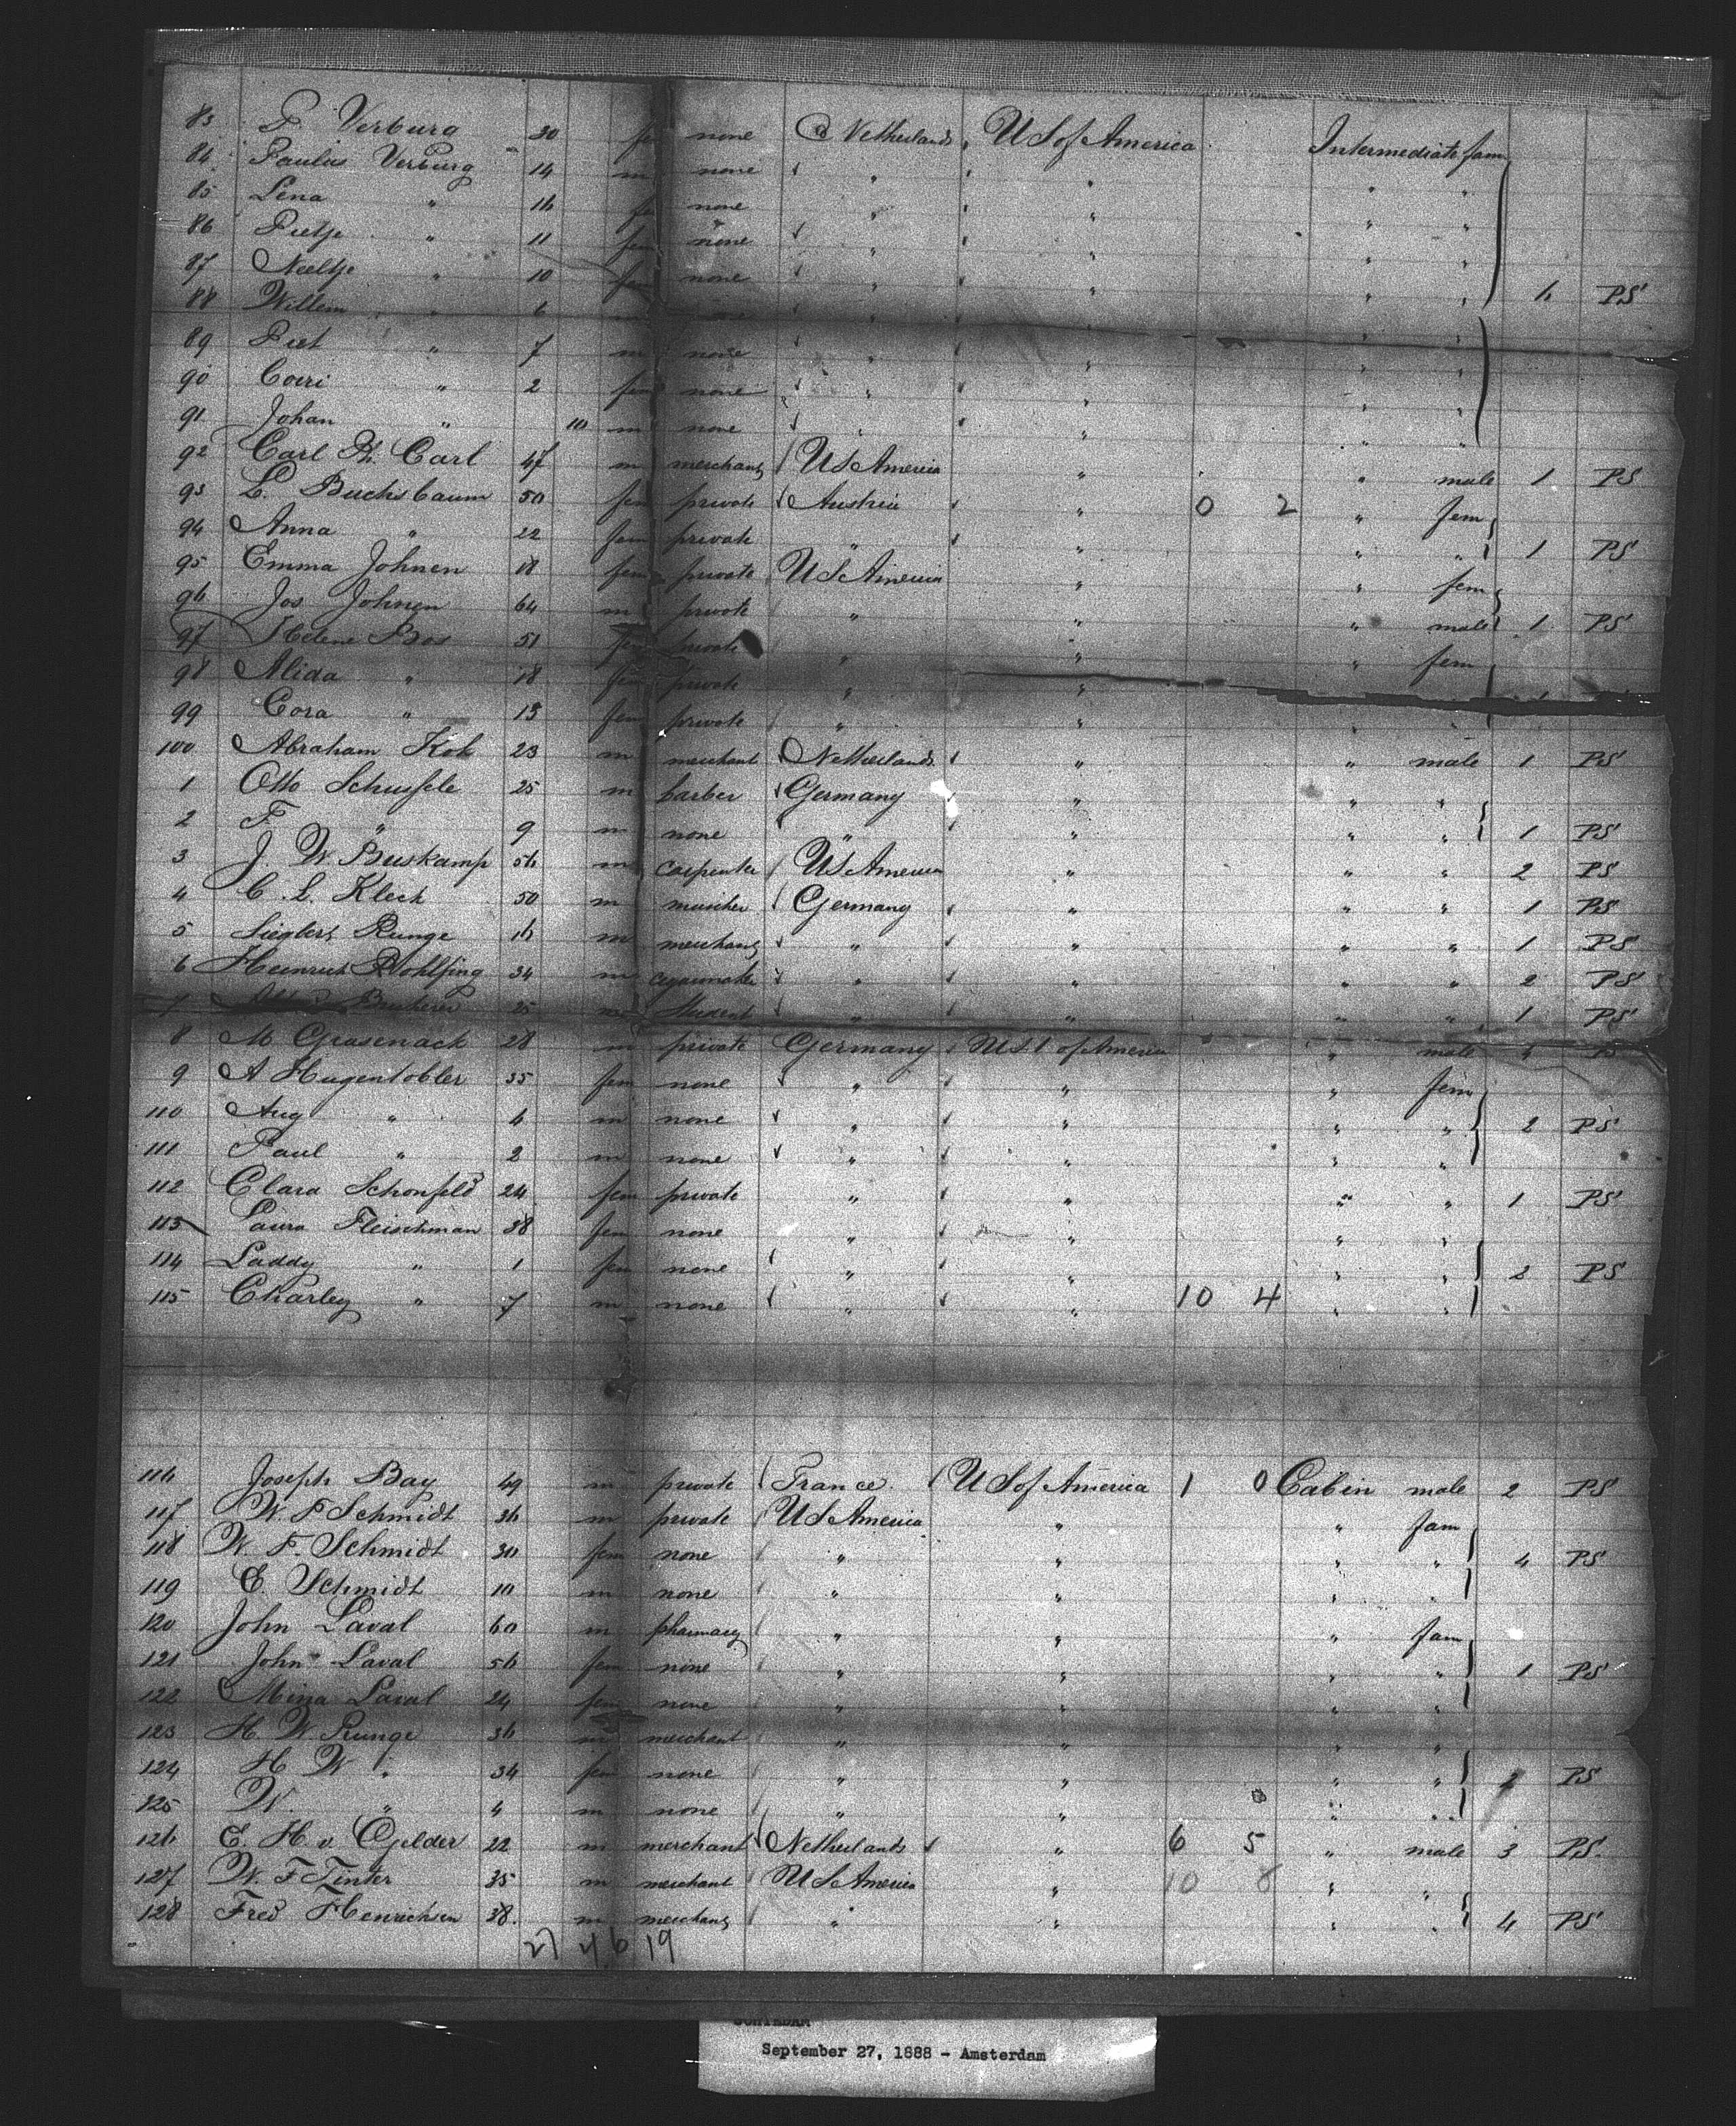 83 P. Verburg 30 fem none Netherlands US of America Intermediate fam
84 Paulus Verburg 14 m none " " " "
85 Lena " 16 fem none " " " "
86 Pietje " 11 fem none " " " "
87 Neeltje " 10 fem none " " " "
88 Willem " 6 " " 6 PS
89 Piet " 7 m none " " " "
90 " 2 fem none " " " "
91 Johan " 10 m none " " " "
92 Carl Ph. Carl 47 m merchant US America " " male 1 PS
93 L. Buchsbaum 50 fem private Austria " 0 2 " fem
94 Anna " 22 fem private " " " " 1 PS
95 Emma Johnen 18 fem private US America " " fem
96 Jos Johnen 64 m private " " " male 1 PS
97 Helene Bos 51 fem private " " " fem
98 Alida " 18 fem private " "
99 Cora " 13 fem private " " " "
100 Abraham Kok 23 m merchant Netherlands " " male 1 PS
1 Otto 25 m barber Germany " " "
2 F. " 9 m none " " " " 1 PS
3 J. W. Buskamp 56 m carpenter US America " " " 2 PS
4 C. L. Kleck 50 m Germany " " " 1 PS
5 Runge 16 m merchant " " " " 1 PS
6 Heinrich Rohlfing 34 m cigarmaker " " " " 2 PS
7 25 m Student " " " " 1 PS
8 M Grasenack 28 m private Germany US of America " male PS
9 A Hugentobler 35 fem none " " " fem
110 Aug " 4 m none " " " " 2 PS
111 Paul " 2 m none " " " "
112 Clara Schonfeld 24 fem private " " " " 1 PS
113 Laura Fleischman 38 fem none " " " "
114 Laddy " 1 fem none " " " " 2 PS
115 Charley " 7 m none " " 10 4 " "
116 Joseph Bay 49 m private France US of America 1 0 Cabin male 2 PS
117 W. F Schmidt 36 m private US America " " fam
118 W. F. Schmidt 30 fem none " " " " 4 PS
119 E. Schmidt 10 m none " " " "
120 John Laval 60 m pharmacy " " " fam
121 John Laval 56 fem none " " " " 1 PS
122 Mina Laval 24 fem none " " " "
123 H. W Runge 36 m merchant " " " "
124 H W " 34 fem none " " " " 2 PS
125 W. " 4 m none " " " "
126 E. H v. Gelder 22 m merchant Netherlands " 6 5 " male 3 PS.
127 W. F Tinter 35 m merchant US America " 10 8 " "
128 Fred Henrichsen 38. m merchant " " " " 4 PS
27 46 19
September 27, 1888 - Amsterdam